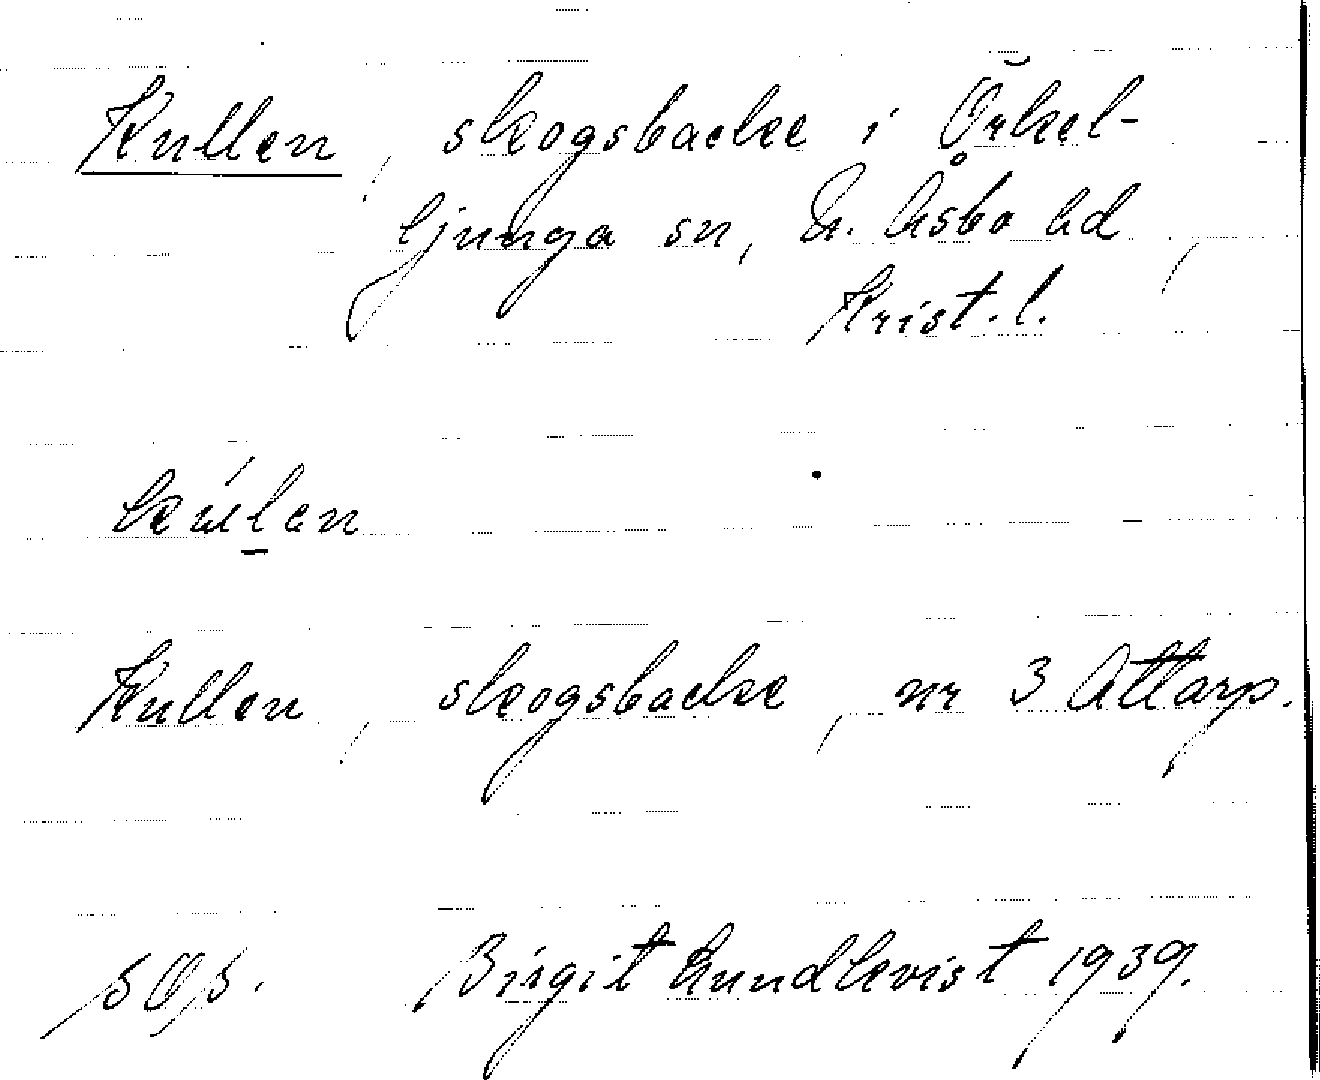 Kullen, skogsbacke i Örkel-
ljunga sn, N. Åsbo hd,
Krist. l.
kúlen
Kullen, skogsbacke, nr 3 Attarp.
SOS. Birgit Lundkvist 1939.